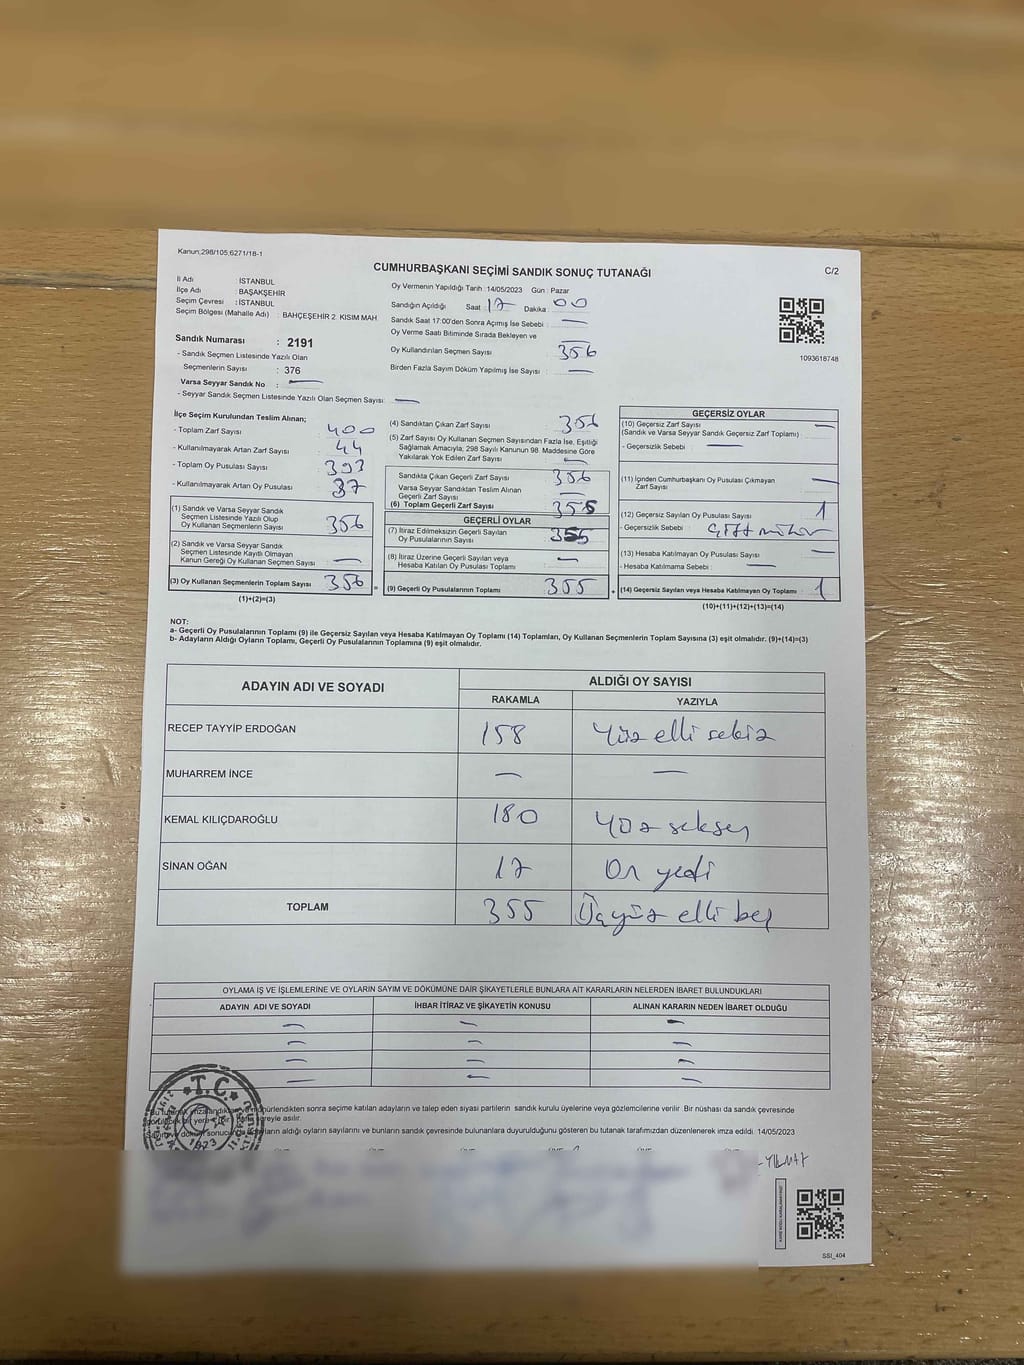 Kanun;298/105;6271/18-1
CUMHURBAŞKANI SEÇİMİ SANDIK SONUÇ TUTANAĞI
C/2
İl Adı : İSTANBUL
İlçe Adı : BAŞAKŞEHİR
Seçim Çevresi : İSTANBUL
Seçim Bölgesi (Mahalle Adı) : BAHÇEŞEHİR 2. KISIM MAH.
Sandık Numarası : 2191
- Sandık Seçmen Listesinde Yazılı Olan
Seçmenlerin Sayısı : 376
Varsa Seyyar Sandık No : —
- Seyyar Sandık Seçmen Listesinde Yazılı Olan Seçmen Sayısı: —
Oy Vermenin Yapıldığı Tarih :14/05/2023 Gün : Pazar
Sandığın Açıldığı Saat : 17 Dakika : 00
Sandık Saat 17:00'den Sonra Açımış İse Sebebi : —
Oy Verme Saati Bitiminde Sırada Bekleyen ve —
Oy Kullandırılan Seçmen Sayısı : 356
Birden Fazla Sayım Döküm Yapılmış İse Sayısı : —
1093618748
İlçe Seçim Kurulundan Teslim Alınan;
- Toplam Zarf Sayısı : 400
- Kullanılmayarak Artan Zarf Sayısı : 44
- Toplam Oy Pusulası Sayısı : 393
- Kullanılmayarak Artan Oy Pusulası : 37
(1) Sandık ve Varsa Seyyar Sandık
Seçmen Listesinde Yazılı Olup
Oy Kullanan Seçmenlerin Sayısı : 356
(2) Sandık ve Varsa Seyyar Sandık
Seçmen Listesinde Kayıtlı Olmayan
Kanun Gereği Oy Kullanan Seçmen Sayısı : —
(3) Oy Kullanan Seçmenlerin Toplam Sayısı : 356
(1)+(2)=(3)
(4) Sandıktan Çıkan Zarf Sayısı : 356
(5) Zarf Sayısı Oy Kullanan Seçmen Sayısından Fazla İse, Eşitliği
Sağlamak Amacıyla; 298 Sayılı Kanunun 98. Maddesine Göre
Yakılarak Yok Edilen Zarf Sayısı : —
Sandıkta Çıkan Geçerli Zarf Sayısı : 356
Varsa Seyyar Sandıktan Teslim Alınan
Geçerli Zarf Sayısı : —
(6) Toplam Geçerli Zarf Sayısı : 356
GEÇERLİ OYLAR
(7) İtiraz Edilmeksizin Geçerli Sayılan
Oy Pusulalarının Sayısı : 355
(8) İtiraz Üzerine Geçerli Sayılan veya
Hesaba Katılan Oy Pusulası Toplamı : —
= (9) Geçerli Oy Pusulalarının Toplamı : 355
GEÇERSİZ OYLAR
(10) Geçersiz Zarf Sayısı : —
(Sandık ve Varsa Seyyar Sandık Geçersiz Zarf Toplamı)
- Geçersizlik Sebebi : —
(11) İçinden Cumhurbaşkanı Oy Pusulası Çıkmayan
Zarf Sayısı : —
(12) Geçersiz Sayılan Oy Pusulası Sayısı : 1
- Geçersizlik Sebebi : Çift mühür
(13) Hesaba Katılmayan Oy Pusulası Sayısı : —
- Hesaba Katılmama Sebebi : —
+ (14) Geçersiz Sayılan veya Hesaba Katılmayan Oy Toplamı : 1
(10)+(11)+(12)+(13)=(14)
NOT:
a- Geçerli Oy Pusulalarının Toplamı (9) ile Geçersiz Sayılan veya Hesaba Katılmayan Oy Toplamı (14) Toplamları, Oy Kullanan Seçmenlerin Toplam Sayısına (3) eşit olmalıdır. (9)+(14)=(3)
b- Adayların Aldığı Oyların Toplamı, Geçerli Oy Pusulalarının Toplamına (9) eşit olmalıdır.
ADAYIN ADI VE SOYADI ALDIĞI OY SAYISI
RAKAMLA YAZIYLA
RECEP TAYYİP ERDOĞAN 158 Yüz elli sekiz
MUHARREM İNCE — —
KEMAL KILIÇDAROĞLU 180 Yüz seksen
SİNAN OĞAN 17 On yedi
TOPLAM 355 Üçyüz elli beş
OYLAMA İŞ VE İŞLEMLERİNE VE OYLARIN SAYIM VE DÖKÜMÜNE DAİR ŞİKAYETLERLE BUNLARA AİT KARARLARIN NELERDEN İBARET BULUNDUKLARI
ADAYIN ADI VE SOYADI İHBAR İTİRAZ VE ŞİKAYETİN KONUSU ALINAN KARARIN NEDEN İBARET OLDUĞU
— — —
— — —
— — —
— — —
T.C.
1923
mühürlendikten sonra seçime katılan adayların ve talep eden siyasi partilerin sandık kurulu üyelerine veya gözlemcilerine verilir. Bir nüshası da sandık çevresinde
süreyle asılır.
aldığı oyların sayılarını ve bunların sandık çevresinde bulunanlara duyurulduğunu gösteren bu tutanak tarafımızdan düzenlenerek imza edildi. 14/05/2023
YILMAZ
SSI_404